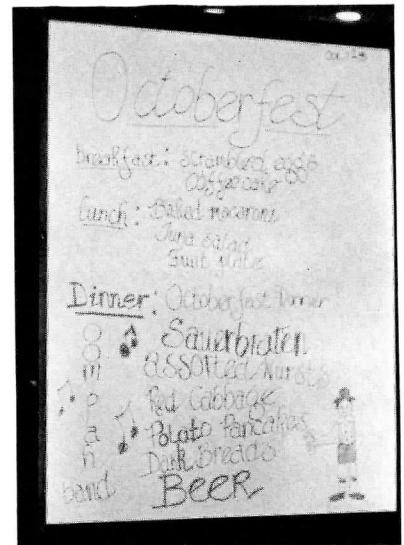 Octoberfest
breakfast: Scrambled eggs
Coffeecake
Lunch: Baked macaroni
Tuna salad
Fruit plate
Dinner: Octoberfest Dinner
Sauerbraten
assorted Wursts
Red Cabbage
Potato Pancakes
Dark Breads
BEER
Oompah
band